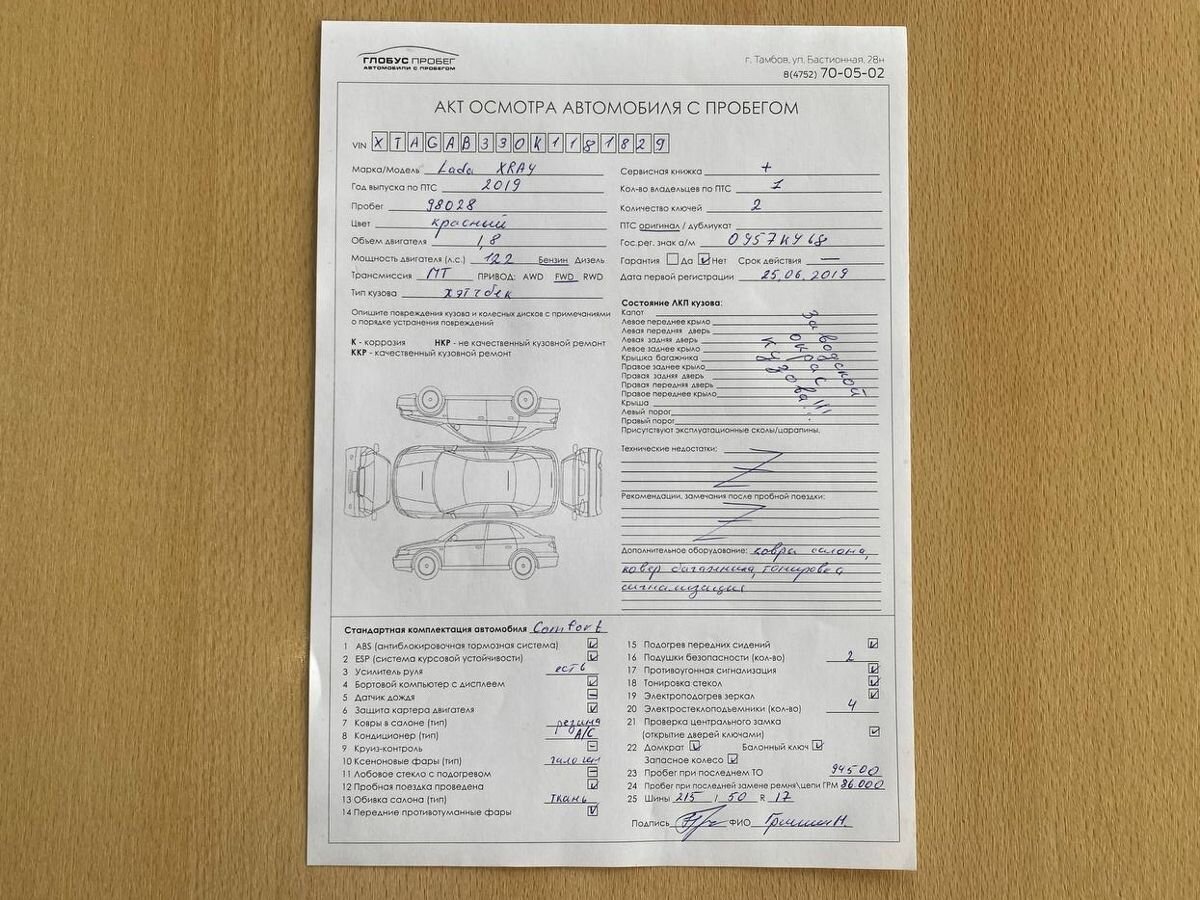 ГЛОБУС ПРОБЕГ
АВТОМОБИЛИ С ПРОБЕГОМ
г. Тамбов, ул. Бастионная, 28н
8(4752) 70-05-02
АКТ ОСМОТРА АВТОМОБИЛЯ С ПРОБЕГОМ
VIN XTAGAB330K1181829
Марка/Модель Lada XRAY
Год выпуска по ПТС 2019
Пробег 98028
Цвет красный
Объем двигателя 1,8
Мощность двигателя (л.с.) 122 Бензин Дизель
Трансмиссия МТ ПРИВОД: AWD FWD RWD
Тип кузова хэтчбек
Опишите повреждения кузова и колесных дисков с примечаниями
о порядке устранения повреждений
К - коррозия НКР - не качественный кузовной ремонт
ККР - качественный кузовной ремонт
Сервисная книжка +
Кол-во владельцев по ПТС 1
Количество ключей 2
ПТС оригинал / дублиукат
Гос.рег. знак а/м О957КУ68
Гарантия Да Нет Срок действия —
Дата первой регистрации 25.06.2019
Состояние ЛКП кузова:
Капот
Левое переднее крыло
Левая передняя дверь
Левая задняя дверь
Левое заднее крыло
Крышка багажника
Правое заднее крыло
Правая задняя дверь
Правая передняя дверь
Правое переднее крыло
Крыша
Левый порог
Правый порог
Заводской
окрас
кузова!!!
Присутствуют эксплуатационные сколы/царапины.
Технические недостатки:
Рекомендации, замечания после пробной поездки:
Дополнительное оборудование: ковры салона,
ковер багажника, тонировка
сигнализация
Стандартная комплектация автомобиля Comfort
1 ABS (антиблокировочная тормозная система)
2 ESP (система курсовой устойчивости)
3 Усилитель руля есть
4 Бортовой компьютер с дисплеем
5 Датчик дождя
6 Защита картера двигателя
7 Ковры в салоне (тип) резина
8 Кондиционер (тип) A/C
9 Круиз-контроль
10 Ксеноновые фары (тип) галоген
11 Лобовое стекло с подогревом
12 Пробная поездка проведена
13 Обивка салона (тип) ткань
14 Передние противотуманные фары
15 Подогрев передних сидений
16 Подушки безопасности (кол-во) 2
17 Противоугонная сигнализация
18 Тонировка стекол
19 Электроподогрев зеркал
20 Электростеклоподъемники (кол-во) 4
21 Проверка центрального замка
(открытие дверей ключами)
22 Домкрат Балонный ключ
Запасное колесо
23 Пробег при последнем ТО 94500
24 Пробег при последней замене ремня\цепи ГРМ 86.000
25 Шины 215 / 50 R 17
Подпись ФИО